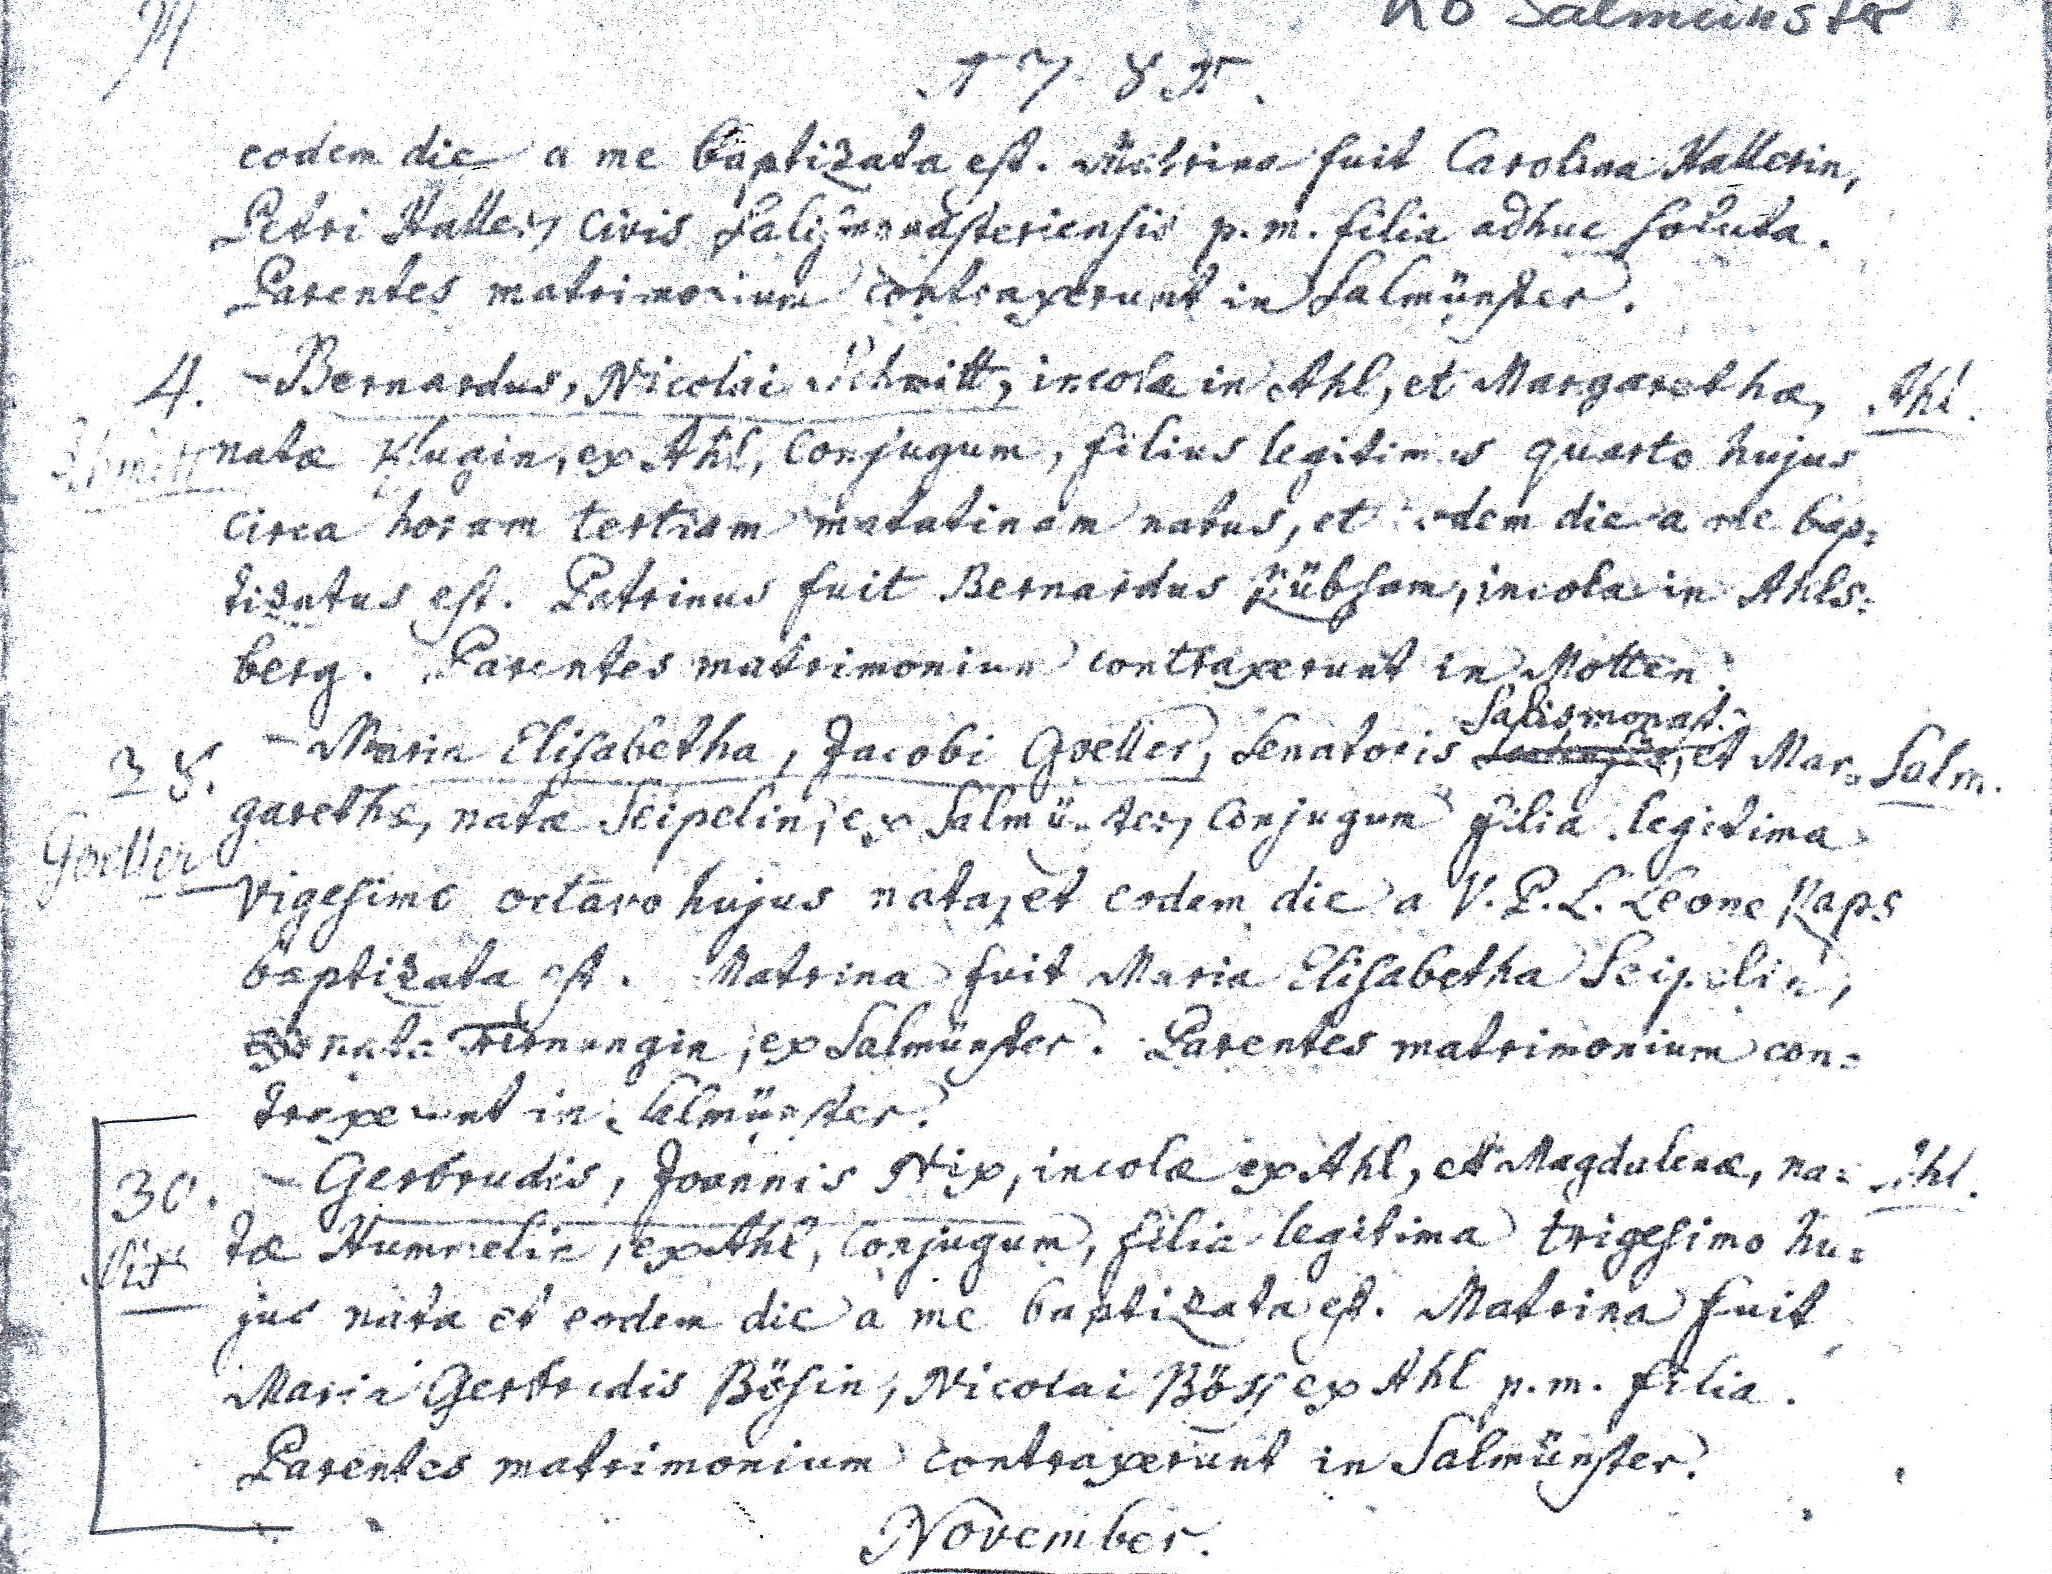 KB Salmünster
178
eodem die a me baptizata est. Matrina fuit Carolina Hallerin,
Petri Haller, civis Salismonasteriensis p. m. filia adhuc soluta.
Parentes matrimonium contraxerunt in Salmünster.
4. - Bernardus, Nicolai Schmitt, incolæ in Ahl, et Margarethæ, Ahl.
Schmitt natæ Klugin, ex Ahl, conjugum, filius legitimus quarto hujus
circa horam tertiam matutinam natus, et eodem die a me bap=
tizatus est. Patrinus fuit Bernardus Rübsam, incola in Ahls=
berg. Parentes matrimonium contraxerunt in Motten.
Salismonast.
28. - Maria Elisabetha, Jacobi Goeller, Senatoris et Mar= Salm.
garethæ, natæ Seipelin, ex Salmünster, conjugum filia legitima
Goeller
vigesimo octavo hujus nata, et eodem die a V. P. L. Leone Kaps
baptizata est. Matrina fuit Maria Elisabetha Seipelin,
nata ex Salmünster. Parentes matrimonium con=
traxerunt in Salmünster.
30. - Gertrudis, Joannis Nix, incolæ ex Ahl, et Magdalenæ, na= Ahl.
Nix tæ Hummelin, ex Ahl, conjugum, filia legitima trigesimo hu=
jus nata et eodem die a me baptizata est. Matrina fuit
Maria Gertrudis Bösin, Nicolai Bös, ex Ahl p. m. filia.
Parentes matrimonium contraxerunt in Salmünster.
November.